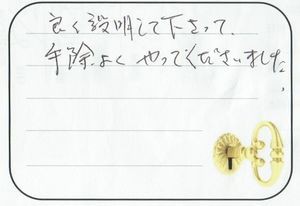 良く説明して下さって、
手際よくやってくださいました。